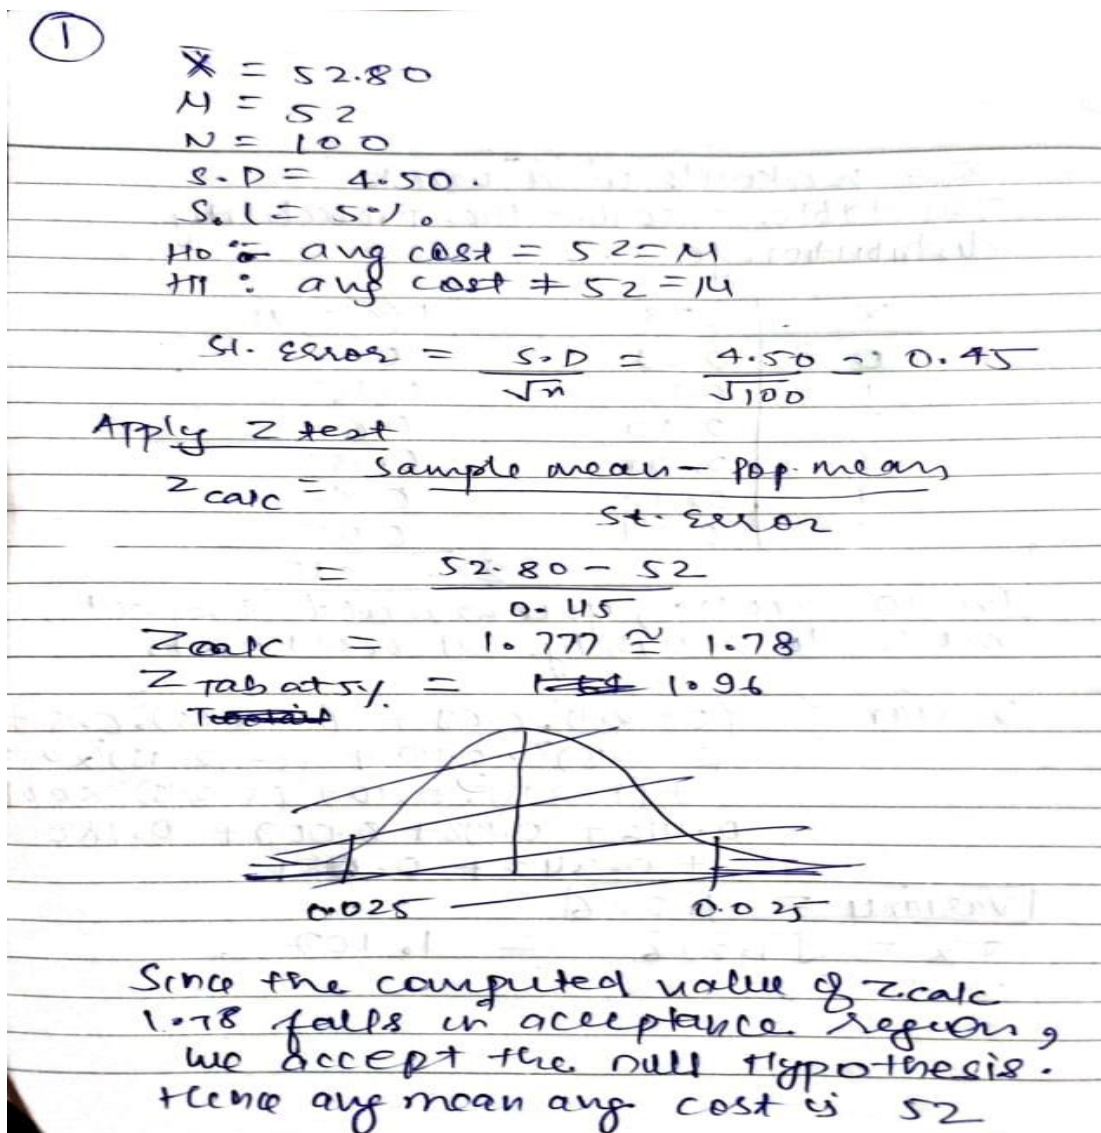 ①
X̄ = 52.80
M = 52
N = 100
S.D = 4.50.
S.l = 5%.
Ho : avg cost = 52 = M
H1 : avg cost ≠ 52 = M
St. Error = S.D / √n = 4.50 / √100 = 0.45
Apply Z test
Z calc = Sample mean - pop. mean / St. Error
= 52.80 - 52 / 0.45
Zcalc = 1.777 ≅ 1.78
Z Tab at 5%. = 1.96
0.025 0.025
Since the computed value of Z.calc
1.78 falls in acceptance region,
we accept the null Hypothesis.
Hence avg mean avg cost is 52